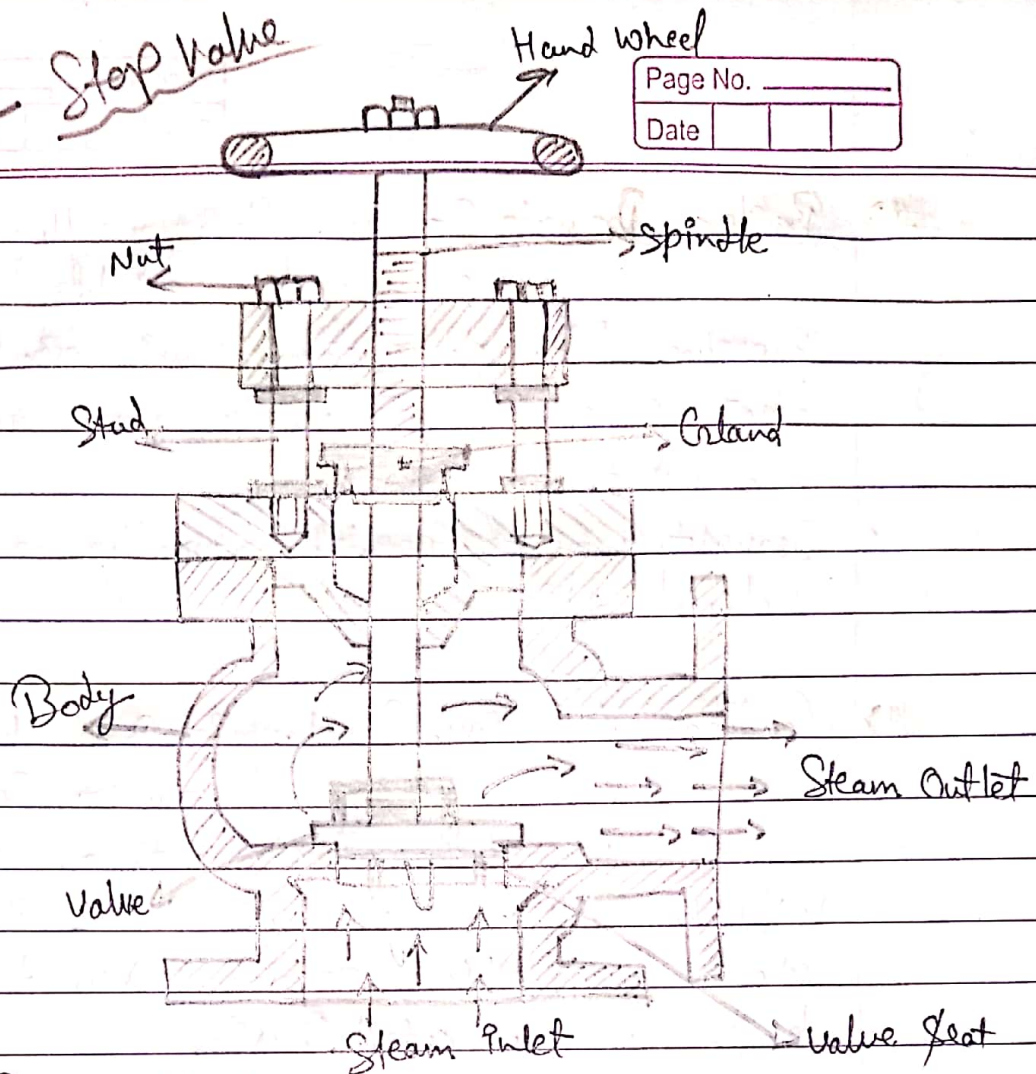 Stop Valve
Hand Wheel
Page No.
Date
Spindle
Nut
Stud
Gland
Body
Steam Outlet
Valve
Steam Inlet
Valve Seat